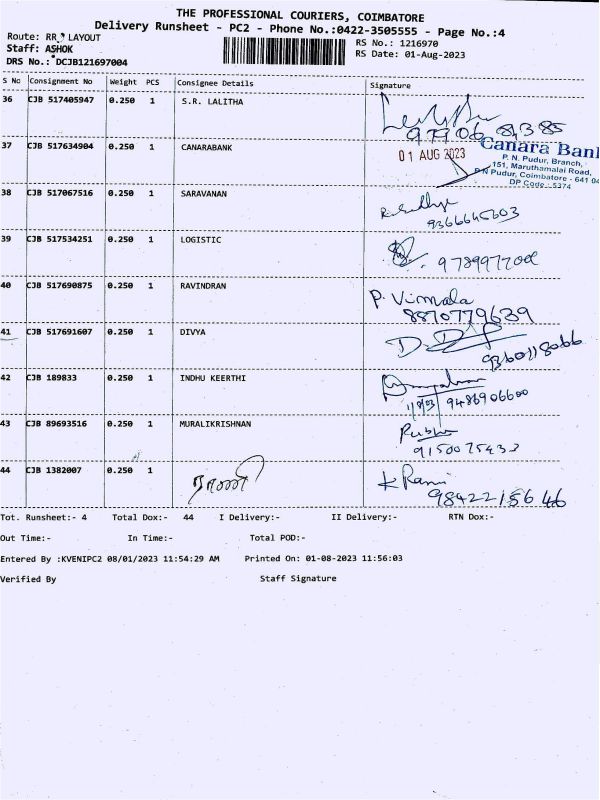 THE PROFESSIONAL COURIERS, COIMBATORE
Delivery Runsheet - PC2 - Phone No.:0422-3505555 - Page No.:4
Route: RR LAYOUT
RS No.: 1216970
Staff: ASHOK
RS Date: 01-Aug-2023
DRS No.: DCJB121697004
S No Consignment No Weight PCS Consignee Details Signature
36 CJB 517405947 0.250 1 S.R. LALITHA
97906 81385
37 CJB 517634904 0.250 1 CANARABANK
01 AUG 2023
Canara Bank
P. N. Pudur, Branch,
151, Maruthamalai Road,
P N Pudur, Coimbatore - 641 04
DP Code: 5374
38 CJB 517067516 0.250 1 SARAVANAN
9366645603
39 CJB 517534251 0.250 1 LOGISTIC
9789977200
40 CJB 517690875 0.250 1 RAVINDRAN
P. Vimala
8870779639
41 CJB 517691607 0.250 1 DIVYA
9360118066
42 CJB 189833 0.250 1 INDHU KEERTHI
9486906600
43 CJB 89693516 0.250 1 MURALIKRISHNAN
9150075433
44 CJB 1382007 0.250 1
K Rami
9842215646
Tot. Runsheet:- 4 Total Dox:- 44 I Delivery:- II Delivery:- RTN Dox:-
Out Time:- In Time:- Total POD:-
Entered By :KVENIPC2 08/01/2023 11:54:29 AM Printed On: 01-08-2023 11:56:03
Verified By Staff Signature